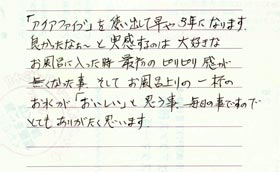 「アクアファイブ」を使い出して早や3年になります。
良かったなぁ〜と実感するのは大好きな
お風呂に入った時最初のピリピリ感が
無くなった事、そしてお風呂上りの一杯の
お水が「おいしい」と思う事、毎日の事ですので
とてもありがたく思います。